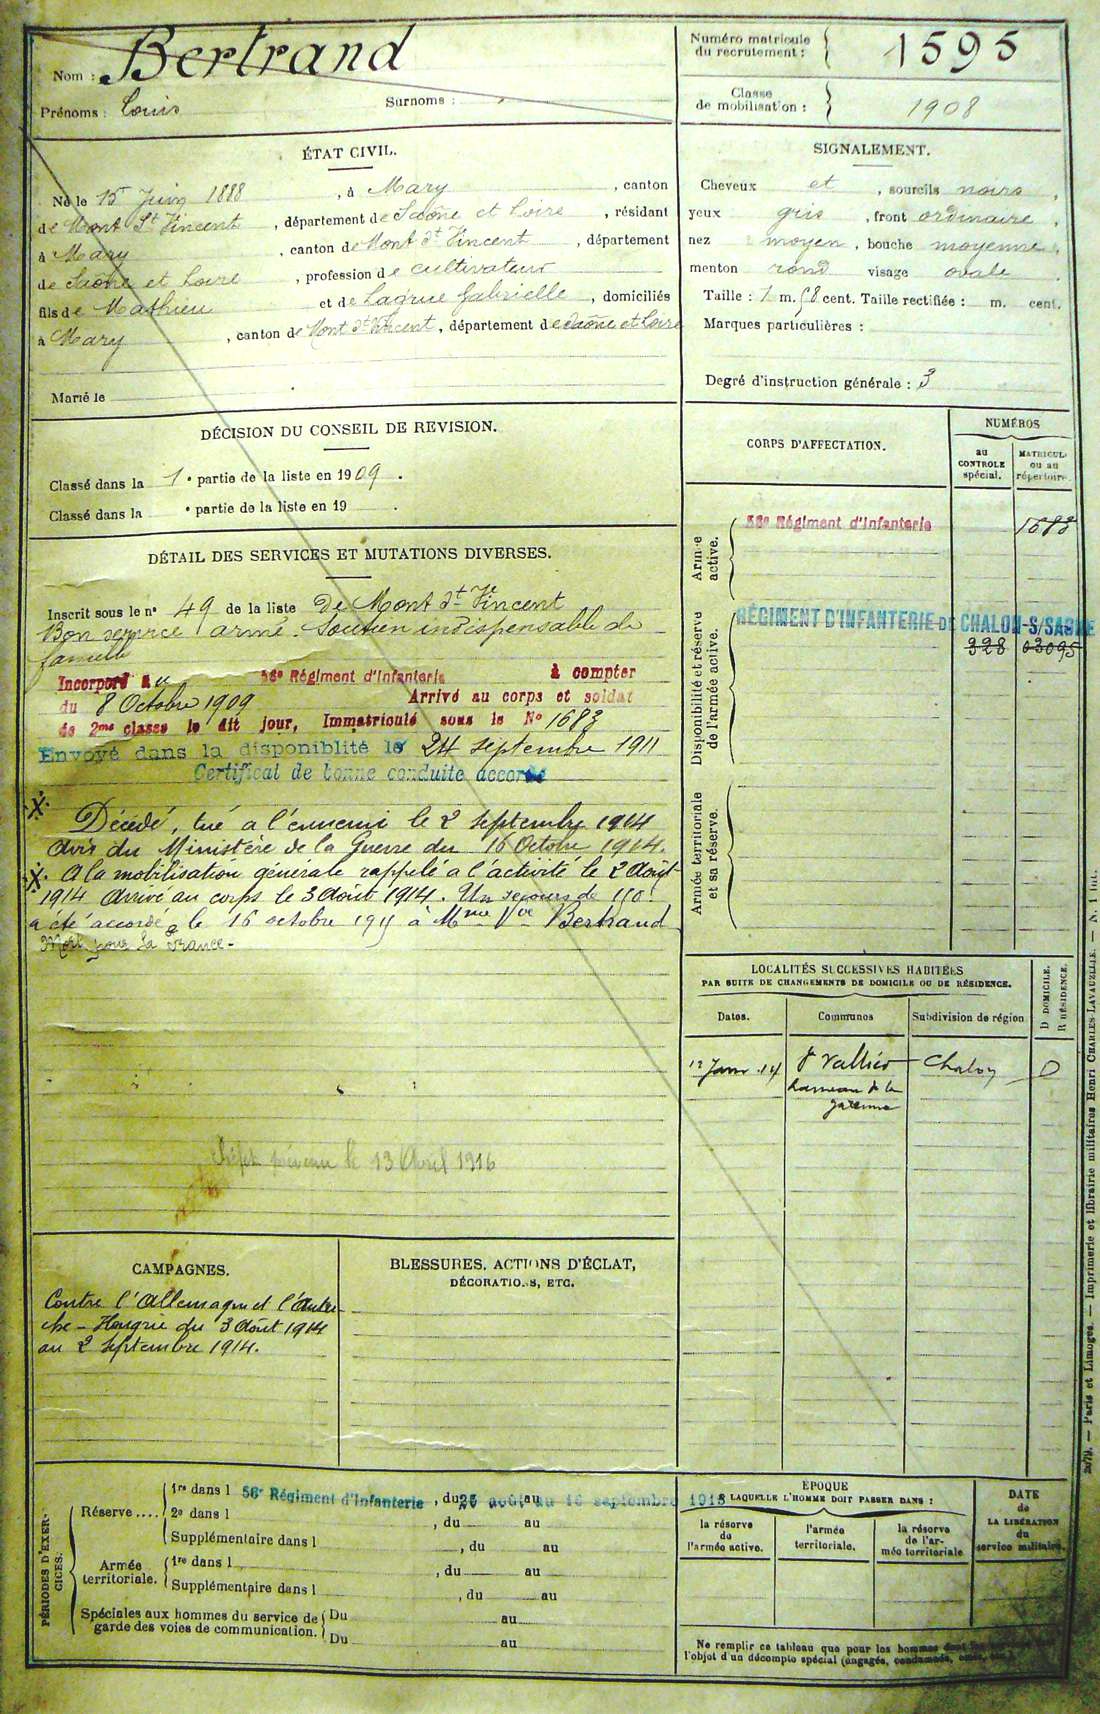 Nom : Bertrand
Prénoms : Louis Surnoms :
Numéro matricule
du recrutement : 1595
Classe
de mobilisation : 1908
ÉTAT CIVIL.
Né le 15 Juin 1888, à Mary, canton
de Mont St Vincent, département de Saône et Loire, résidant
à Mary, canton de Mont St Vincent, département
de Saône et Loire, profession de cultivateur
fils de Mathieu et de Lagrue Gabrielle, domiciliés
à Mary, canton de Mont St Vincent, département de Saône et Loire
Marié le
SIGNALEMENT.
Cheveux et, sourcils noirs,
yeux gris, front ordinaire,
nez moyen, bouche moyenne,
menton rond visage ovale
Taille : 1 m. 58 cent. Taille rectifiée : m. cent.
Marques particulières :
Degré d'instruction générale : 3
DÉCISION DU CONSEIL DE REVISION.
Classé dans la 1e partie de la liste en 1909.
Classé dans la e partie de la liste en 19 .
DÉTAIL DES SERVICES ET MUTATIONS DIVERSES.
Inscrit sous le no 49 de la liste de Mont St Vincent
Bon service armé. Soutien indispensable de
famille
Incorporé au 56e Régiment d'Infanterie à compter
du 8 Octobre 1909 Arrivé au corps et soldat
de 2me classe le dit jour, Immatriculé sous le No 1683
Envoyé dans la disponiblité le 24 septembre 1911
Certificat de bonne conduite accordé
X. Décédé, tué a l'ennemi le 2 septembre 1914
avis du Ministère de la Guerre du 16 Octobre 1914.
X. A la mobilisation générale rappelé a l'activité le 2 Août
1914 Arrivé au corps le 3 Août 1914. Un secours de 150f
a été accordé le 16 octobre 1915 à Mme Vve Bertrand
Mort pour la France-
le 13 Avril 1916
CORPS D'AFFECTATION.
NUMÉROS
au
CONTROLE
spécial.
MATRICULE
ou au
répertoire.
Armée
active.
56e Régiment d'Infanterie 1683
Disponibilité et réserve
de l'armée active.
RÉGIMENT D'INFANTERIE DE CHALON-S/SAONE
328 03095
Armée territoriale
et sa réserve.
LOCALITÉS SUCCESSIVES HABITÉES
PAR SUITE DE CHANGEMENTS DE DOMICILE OU DE RÉSIDENCE.
Dates. Communes Subdivision de région
D DOMICILE.
R RÉSIDENCE.
12 Janv. 14 St Vallier Chalon D
hameau de la
garenne
CAMPAGNES.
Contre l'Allemagne et l'Autri-
che-Hongrie du 3 Août 1914
au 2 Septembre 1914.
BLESSURES, ACTIONS D'ÉCLAT,
DÉCORATIONS, ETC.
PÉRIODES D'EXER-
CICES.
Réserve.... 1re dans l 56e Régiment d'Infanterie, du 25 août au 10 septembre 1913
2e dans l , du au
Supplémentaire dans l , du au
Armée
territoriale. 1re dans l , du au
Supplémentaire dans l , du au
Spéciales aux hommes du service de
garde des voies de communication. Du au
Du au
ÉPOQUE
A LAQUELLE L'HOMME DOIT PASSER DANS :
la réserve
de
l'armée active.
l'armée
territoriale.
la réserve
de l'ar-
mée territoriale
DATE
de
LA LIBÉRATION
du
service militaire.
Ne remplir ce tableau que pour les hommes dont les
l'objet d'un décompte spécial (engagés, condamnés, omis, etc.)
Paris et Limoges. — Imprimerie et librairie militaires Henri CHARLES-LAVAUZELLE. — N. 1 Int.